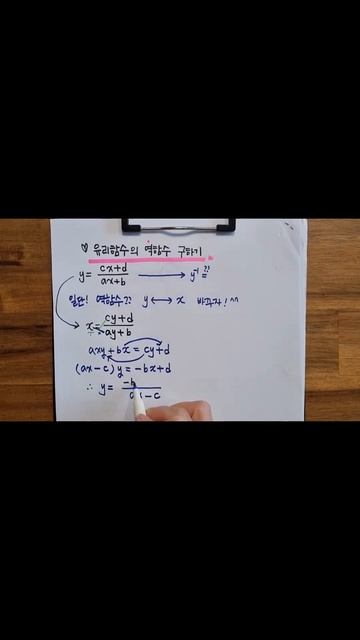 ♡ 유리함수의 역함수 구하기
y = (cx+d)/(ax+b) → y⁻¹ = ??
일단! 역함수?? y ↔ x 바꾸자! ^^
x = (cy+d)/(ay+b)
axy + bx = cy + d
(ax-c) y = -bx + d
∴ y = -b/(ax-c)